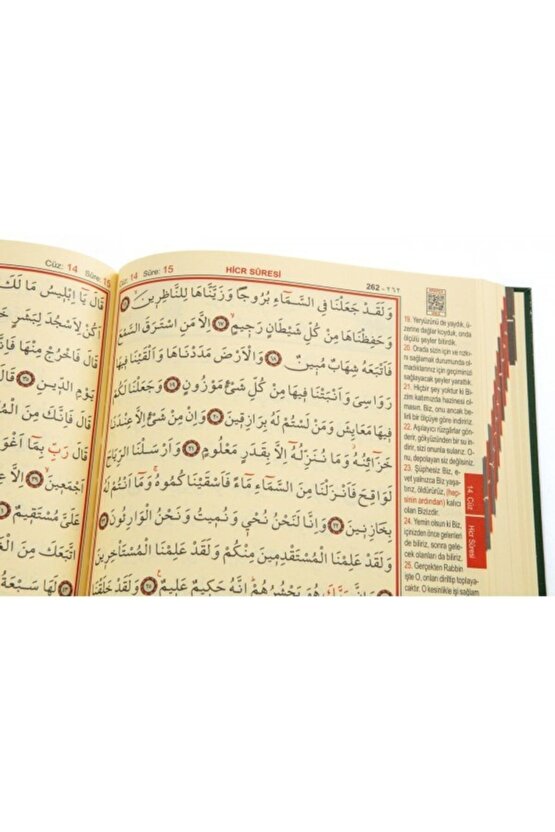 Cüz: 14 Sûre: 15
Cüz: 14 Sûre: 15
HİCR SÛRESİ
262 - ٢٦٢
وَلَقَدْ جَعَلْنَا فِي السَّمَٓاءِ بُرُوجًا وَزَيَّنَّاهَا لِلنَّاظِرِينَۙ
وَحَفِظْنَاهَا مِنْ كُلِّ شَيْطَانٍ رَجِيمٍۙ ﴿١٧﴾ اِلَّا مَنِ اسْتَرَقَ السَّمْعَ
فَاَتْبَعَهُ شِهَابٌ مُبِينٌ ﴿١٨﴾ وَالْاَرْضَ مَدَدْنَاهَا وَاَلْقَيْنَا فِيهَا
رَوَاسِيَ وَاَنْبَتْنَا فِيهَا مِنْ كُلِّ شَيْءٍ مَوْزُونٍ ﴿١٩﴾ وَجَعَلْنَا لَكُمْ
فِيهَا مَعَايِشَ وَمَنْ لَسْتُمْ لَهُ بِرَازِقِينَ ﴿٢٠﴾ وَاِنْ مِنْ شَيْءٍ اِلَّا عِنْدَنَا
خَزَٓائِنُهُ وَمَا نُنَزِّلُهُٓ اِلَّا بِقَدَرٍ مَعْلُومٍ ﴿٢١﴾ وَاَرْسَلْنَا الرِّيَاحَ
لَوَاقِحَ فَاَنْزَلْنَا مِنَ السَّمَٓاءِ مَٓاءً فَاَسْقَيْنَاكُمُوهُۚ وَمَٓا اَنْتُمْ لَهُ
بِخَازِنِينَ ﴿٢٢﴾ وَاِنَّا لَنَحْنُ نُحْيِ وَنُمِيتُ وَنَحْنُ الْوَارِثُونَ ﴿٢٣﴾
وَلَقَدْ عَلِمْنَا الْمُسْتَقْدِمِينَ مِنْكُمْ وَلَقَدْ عَلِمْنَا الْمُسْتَأْخِرِينَ
﴿٢٤﴾ وَاِنَّ رَبَّكَ هُوَ يَحْشُرُهُمْۜ اِنَّهُ حَكِيمٌ عَلِيمٌ ﴿٢٥﴾ وَلَقَدْ خَلَقْنَا
19. Yeryüzünü de yaydık, ü-
zerine dağlar koyduk, onda
ölçülü şeyler bitirdik.
20. Orada sizin için ve rızkı-
nı sağlamak durumunda ol-
madıklarınız için geçiminizi
sağlayacak şeyler yarattık.
21. Hiçbir şey yoktur ki Bi-
zim katımızda hazinesi ol-
masın. Biz, onu ancak be-
lirlenmiş bir ölçüye göre indiririz.
22. Aşılayıcı rüzgârlar gön-
derir, gökyüzünden bir su in-
dirir, sizi onunla sularız. O-
nu, depolayan siz değilsiniz.
23. Şüphesiz Biz, e-
vet yalnızca Biz yaşa-
tırız, öldürürüz, (hep-
sinin ardından) kalıcı
olan Bizizdir.
24. Yemin olsun ki Biz,
içinizden önce gelenleri
de biliriz, sonra gele-
cek olanları da biliriz.
25. Gerçekten Rabbin
işte O, onları diriltip toplaya-
caktır. O kesinlikle işi sağlam
14. Cüz
Hicr Sûresi
قَالَ يَٓا اِبْلِيسُ مَا لَكَ
اَكُنْ لِاَسْجُدَ لِبَشَرٍ
قَالَ فَاخْرُجْ مِنْهَا
يَوْمِ الدِّينِ ﴿٣٥﴾ قَالَ
قَالَ فَاِنَّكَ مِنَ
قَالَ رَبِّ بِمَٓا اَغْوَ
اَجْمَعِينَۙ ﴿٣٩﴾
عَلَيَّ مُسْتَقِيمٌ ﴿٤١﴾
اتَّبَعَكَ مِنَ
لَهَا سَبْعَةُ